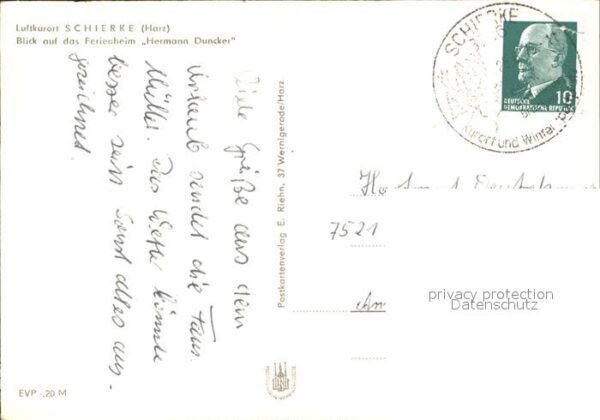 Luftkurort SCHIERKE (Harz)
Blick auf das Ferienheim „Hermann Duncker"
Viele Grüße aus dem
Urlaub sendet die Fam.
Müller. Das Wetter könnte
besser sein. Sonst alles aus-
gezeichnet.
Postkartenverlag E. Riehn, 37 Wernigerode/Harz
SCHIERKE
Kurort und Winter
DEUTSCHE
DEMOKRATISCHE REPUBLIK
10
7521
privacy protection
Datenschutz
EVP -,20 M